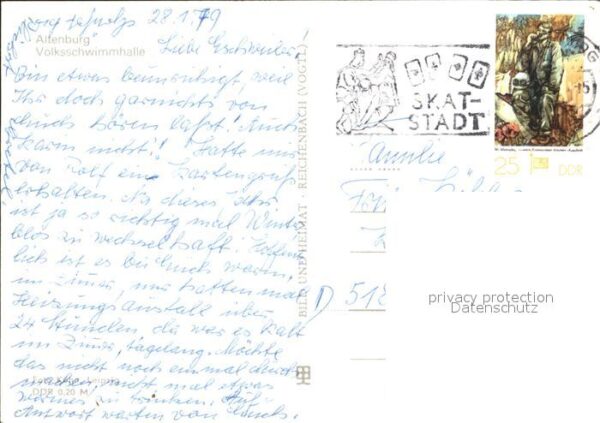 28.1.79
Altenburg
Volksschwimmhalle
Liebe Eschweiler!
Bin etwas beunruhigt, weil
Ihr doch garnichts von
Euch hören laßt! Auch
Karin nicht! Hatte nur
von Rolf ein Kartengruß
erhalten. Na dieses Jahr
ist ja so richtig mal Winter
blos zu wechselhaft. Hoffent
lich ist es bei Euch warm,
im Zimmer, wir hatten mal
Heizungsausfall über
24 Stunden da war es kalt
im Zimmer, tagelang. Möchte
das nicht noch einmal durch
machen, nicht mal etwas
warmes zu trinken. Auf
Antwort warten von Euch.
Leipzig
DDR 0,20 M
BILD UND HEIMAT · REICHENBACH (VOGTL)
SKAT-
STADT
25 DDR
Familie
D 512
privacy protection
Datenschutz